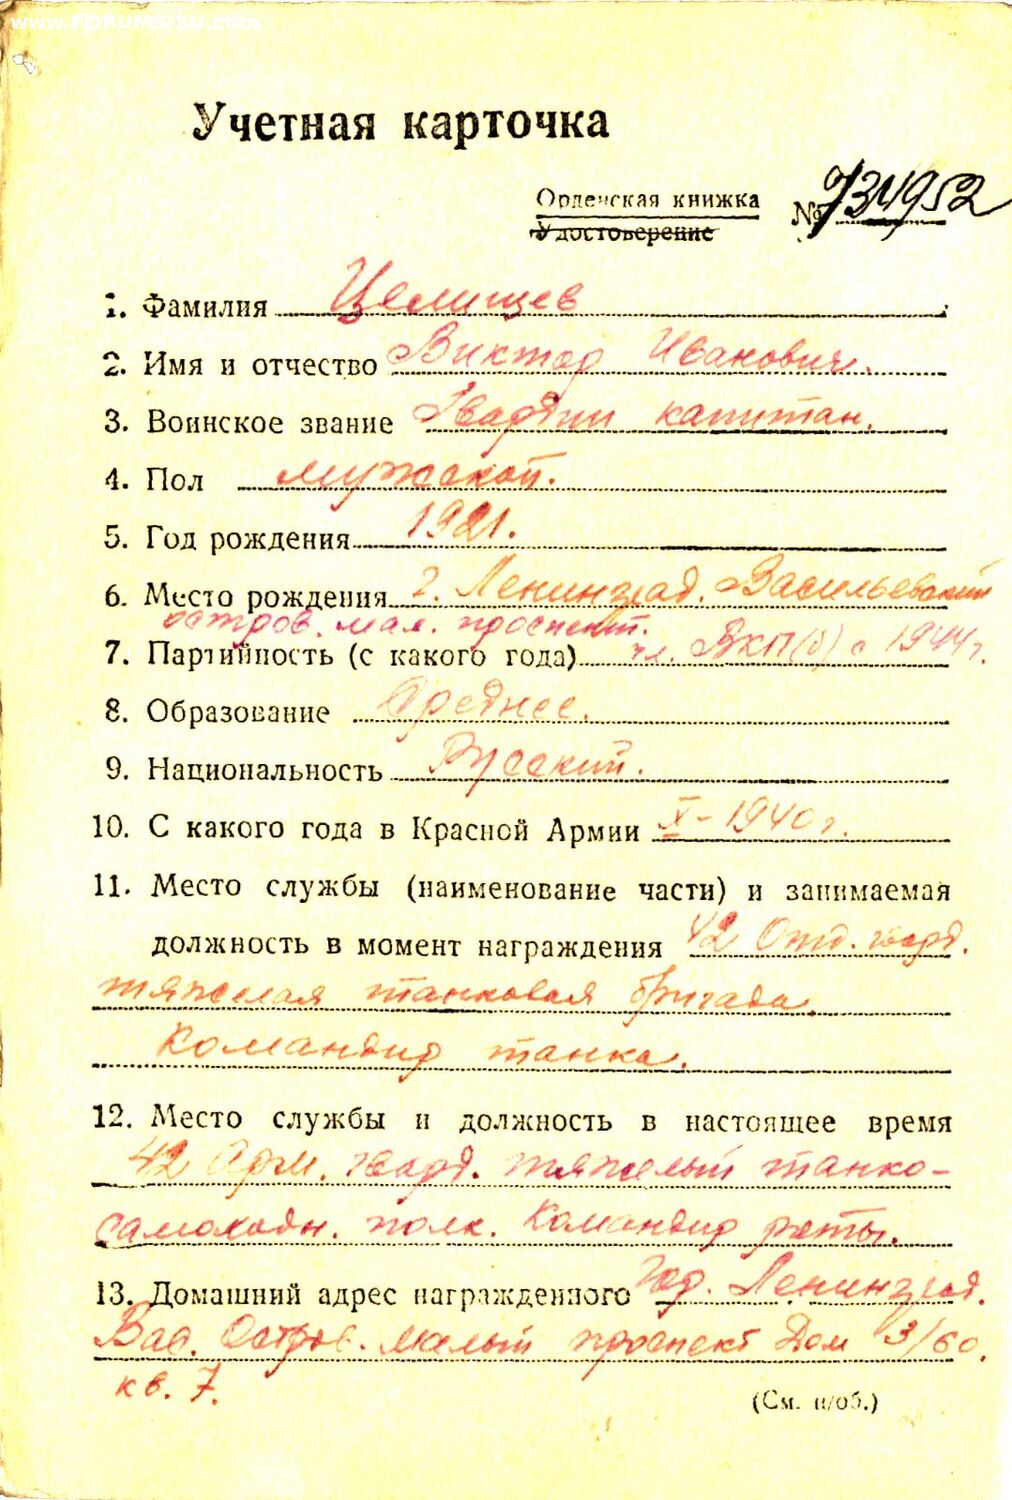 www.FORUMS-SU.com
Учетная карточка
Орденская книжка
№ 734952
Удостоверение
1. Фамилия Целищев
2. Имя и отчество Виктор Иванович.
3. Воинское звание Гвардии капитан.
4. Пол мужской.
5. Год рождения 1921.
6. Место рождения г. Ленинград. Васильевский
остров. мал. проспект.
7. Партийность (с какого года) чл. ВКП(б) с 1944 г.
8. Образование Среднее.
9. Национальность Русский.
10. С какого года в Красной Армии X-1940 г.
11. Место службы (наименование части) и занимаемая
должность в момент награждения 42 Отд. гвард.
тяжелая танковая бригада.
Командир танка.
12. Место службы и должность в настоящее время
42 Арм. гвард. тяжелый танко-
самоходн. полк. Командир роты.
13. Домашний адрес награжденного Гор. Ленинград.
Вас. Остров. Малый проспект Дом 3/60.
кв. 7.
(См. н/об.)